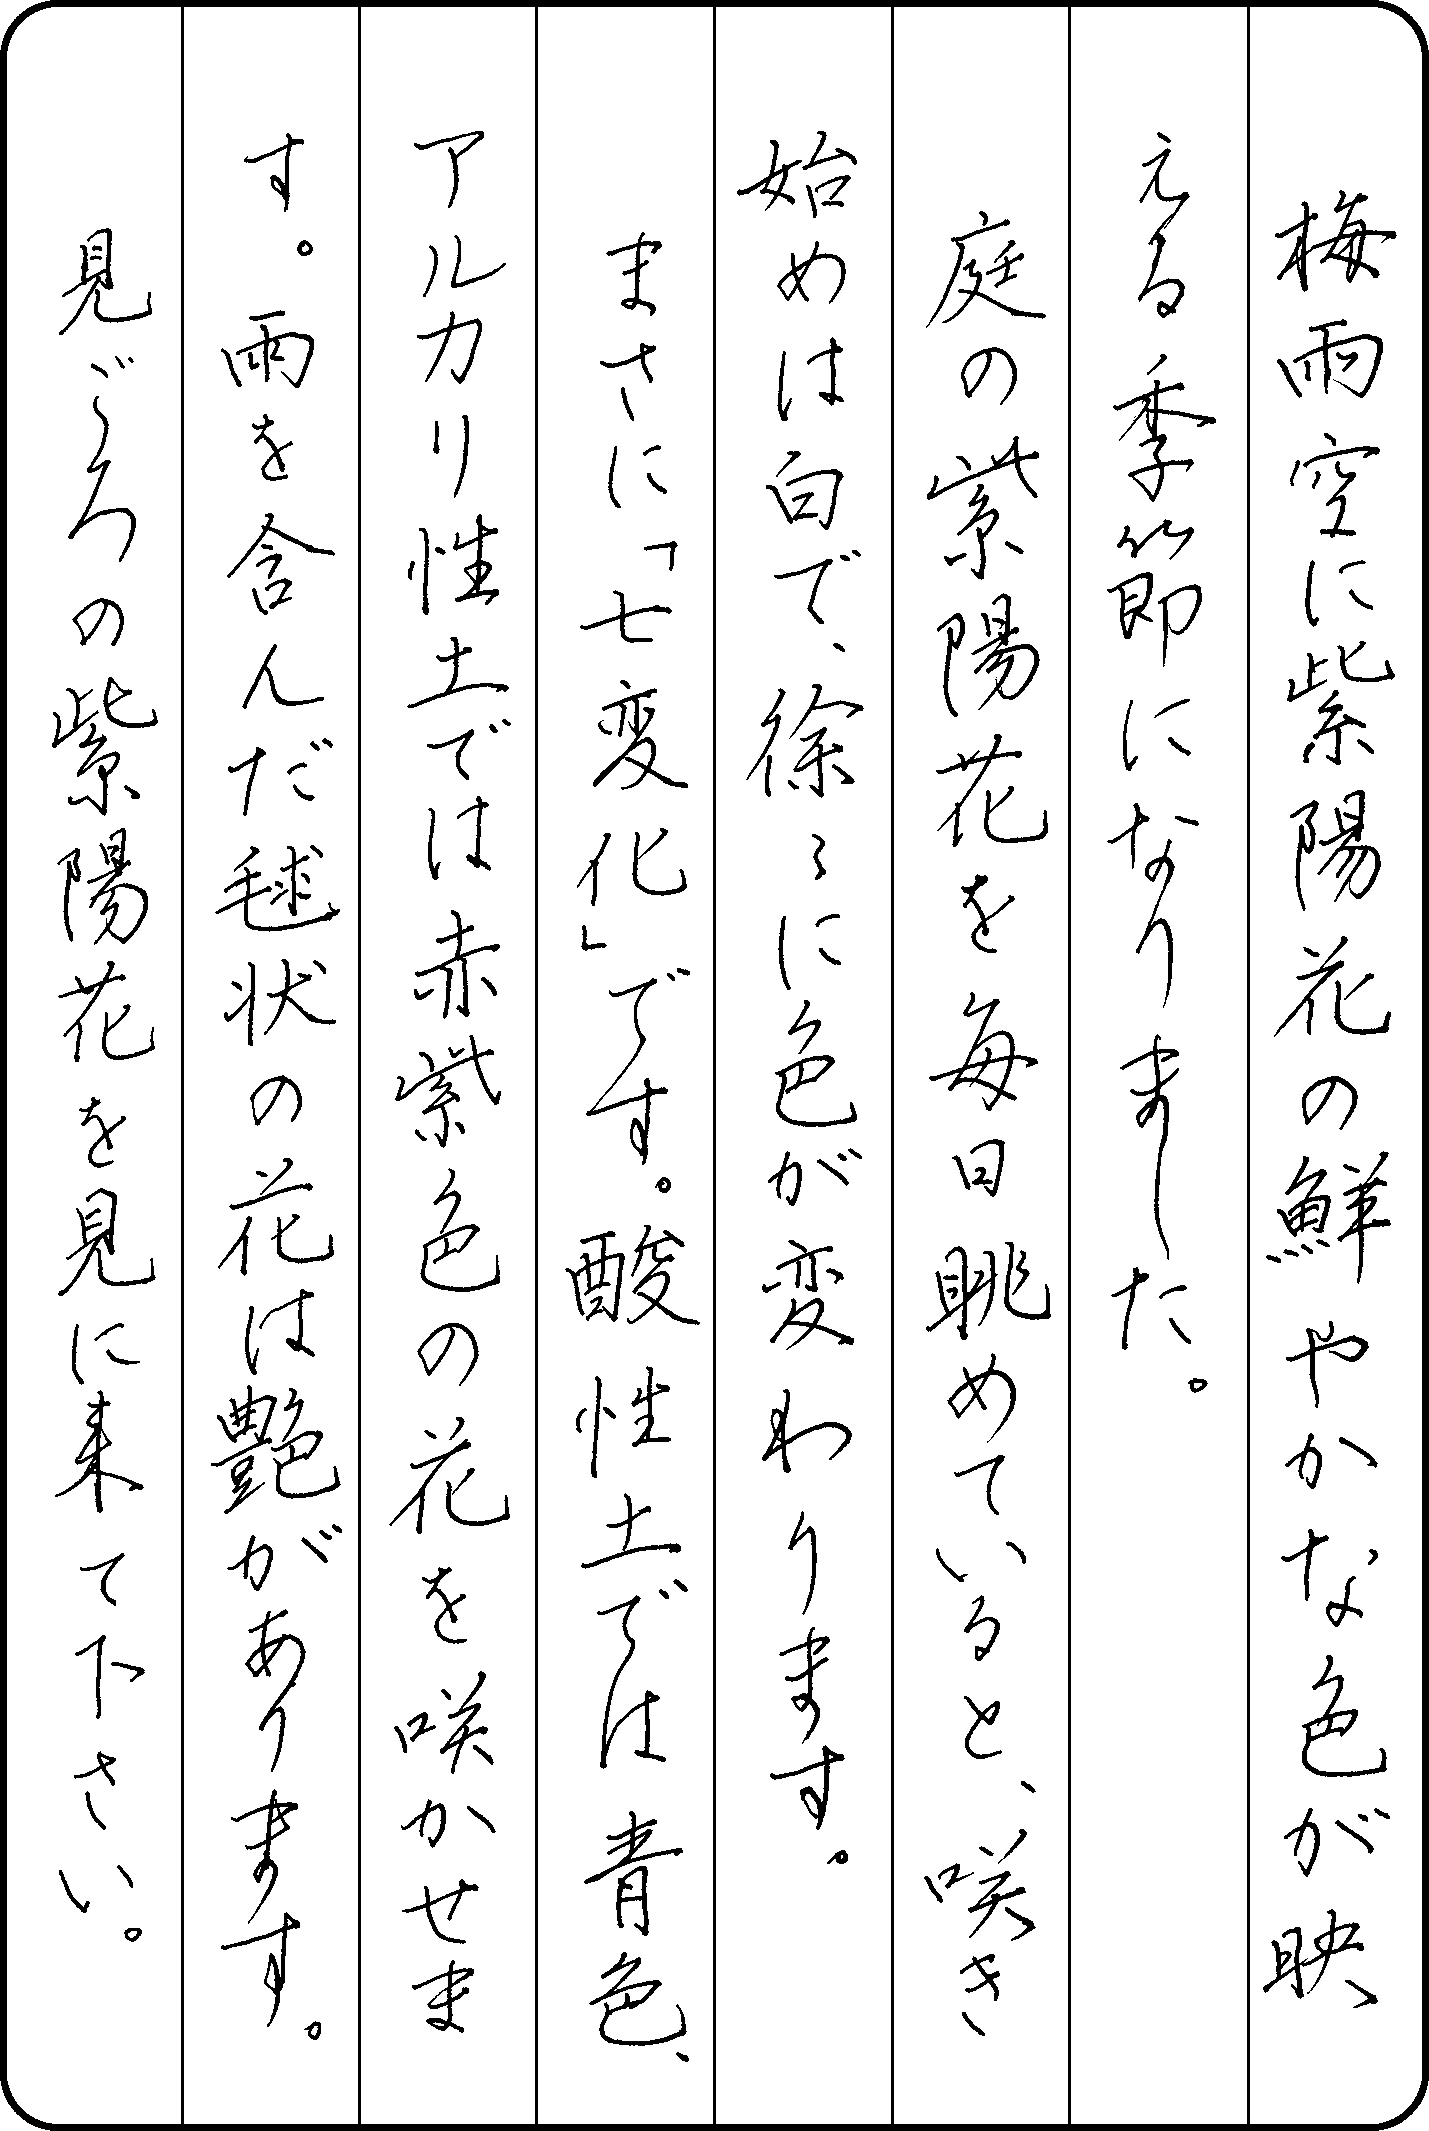 梅雨空に紫陽花の鮮やかな色が映
える季節になりました。
庭の紫陽花を毎日眺めていると、咲き
始めは白で、徐々に色が変わります。
まさに「七変化」です。酸性土では青色、
アルカリ性土では赤紫色の花を咲かせま
す。雨を含んだ毬状の花は艶があります。
見ごろの紫陽花を見に来て下さい。